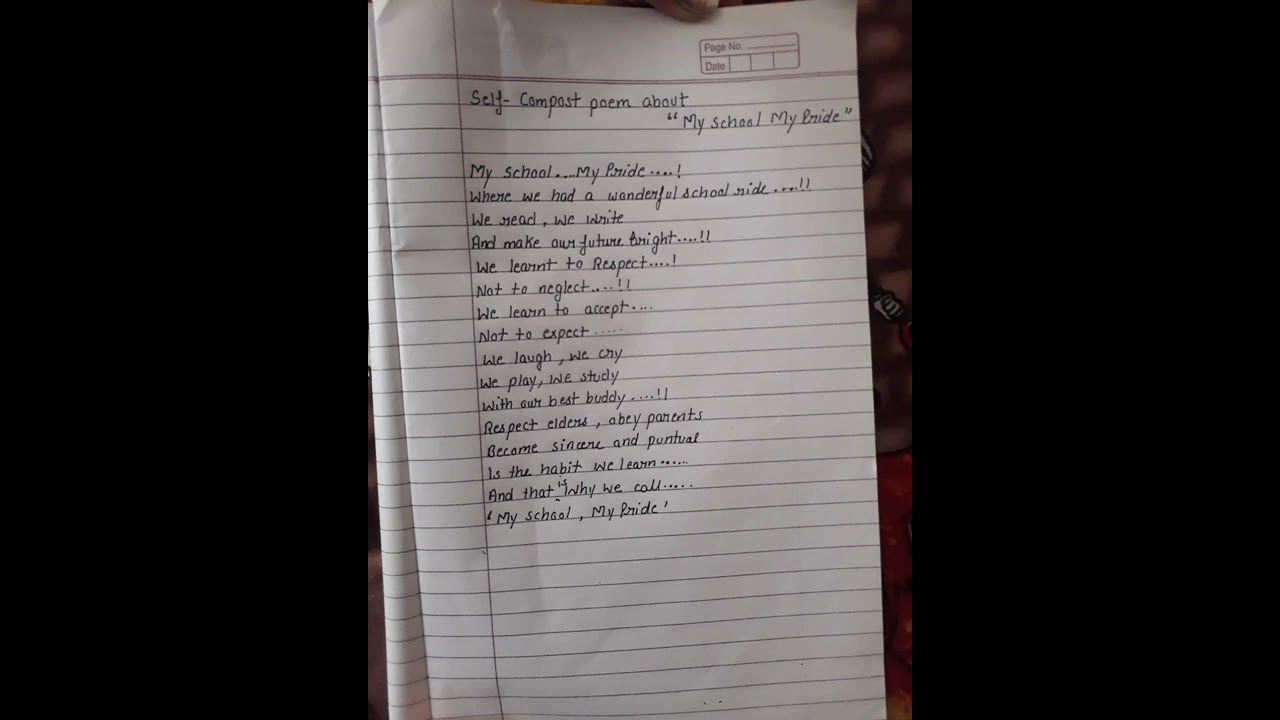 Page No.
Date
Self- Compost poem about
"My school My Pride"
My school....My Pride....!
Where we had a wanderful school ride....!!
We read, we write
And make our future bright....!!
We learnt to Respect....!
Not to neglect....!!
We learn to accept....
Not to expect.....
We laugh, we cry
We play, we study
With our best buddy....!!
Respect elders, obey parents
Become sincere and puntual
Is the habit we learn.....
And that is why we call.....
'My school, My Pride'